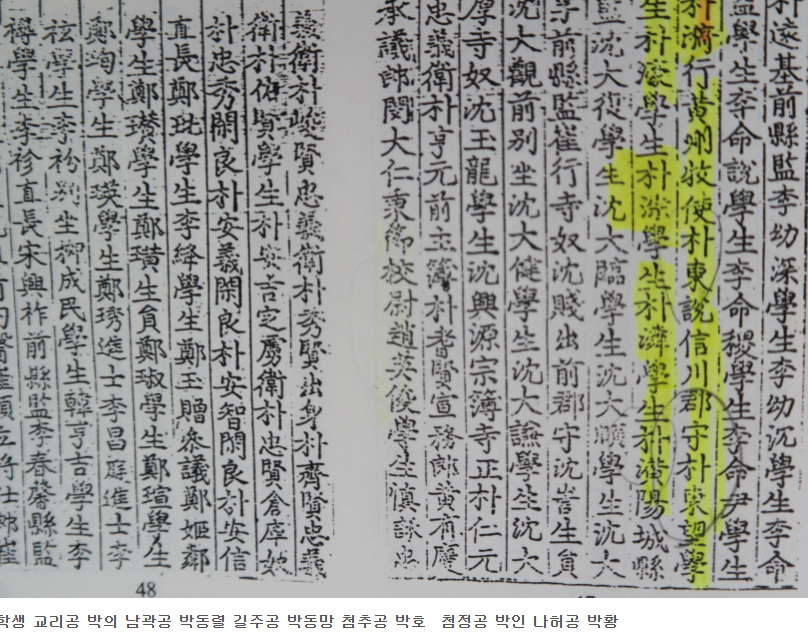 遠基前縣監李幼深學生李幼沉學生李命
監學生李命說學生李命稷學生李命尹學生
朴濟行黃州牧使朴東說信川郡守朴東望學
生朴濠學生朴學生朴學生朴潢陽城縣
監沈大復學生沈大臨學生沈大順學生沈大
孚前縣監崔行寺奴沈賤出前郡守沈訔生員
沈大觀前別坐沈大健學生沈大謙學生沈大
厚寺奴沈玉龍學生沈興源宗簿寺正朴仁元
忠義衛朴亨元前主簿朴耆賢宣務郎黃有慶
承議郎閔大仁秉節校尉趙英俊學生愼詠忠
義衛朴峻賢忠義衛朴秀賢出身朴齊賢忠義
衛朴佑賢學生朴安吉定虜衛朴忠賢倉庫奴
朴忠秀閑良朴安義閑良朴安智閑良朴安信
直長鄭玭學生李絳學生鄭玉贈參議鄭姬鄰
學生鄭瓚學生鄭璜生員鄭琡學生鄭瑄學生
鄭珣學生鄭瑛學生鄭琇進士李昌庭進士李
學生李衯別坐柳成民學生韓亨吉學生李
稱學生李袗直長宋興祚前縣監李春馨縣監
48
학생 교리공 박의 남곽공 박동렬 길주공 박동망 첨추공 박호 첨정공 박인 나허공 박황